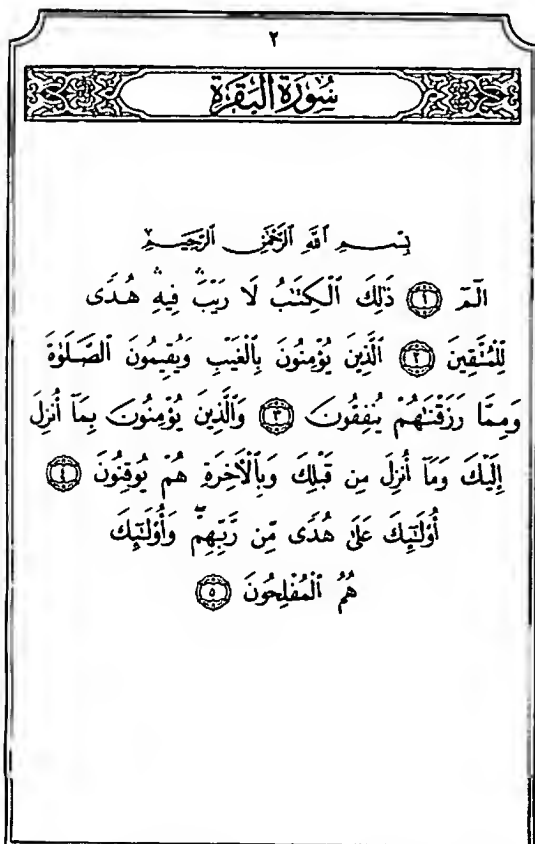 ٢
سُورَةُ الْبَقَرَةِ
بِسْمِ ٱللَّهِ ٱلرَّحْمَٰنِ ٱلرَّحِيمِ
الٓمٓ ١ ذَٰلِكَ ٱلْكِتَٰبُ لَا رَيْبَ ۛ فِيهِ ۛ هُدًى
لِّلْمُتَّقِينَ ٢ ٱلَّذِينَ يُؤْمِنُونَ بِٱلْغَيْبِ وَيُقِيمُونَ ٱلصَّلَوٰةَ
وَمِمَّا رَزَقْنَٰهُمْ يُنفِقُونَ ٣ وَٱلَّذِينَ يُؤْمِنُونَ بِمَآ أُنزِلَ
إِلَيْكَ وَمَآ أُنزِلَ مِن قَبْلِكَ وَبِٱلْءَاخِرَةِ هُمْ يُوقِنُونَ ٤
أُو۟لَٰٓئِكَ عَلَىٰ هُدًى مِّن رَّبِّهِمْ ۖ وَأُو۟لَٰٓئِكَ
هُمُ ٱلْمُفْلِحُونَ ٥